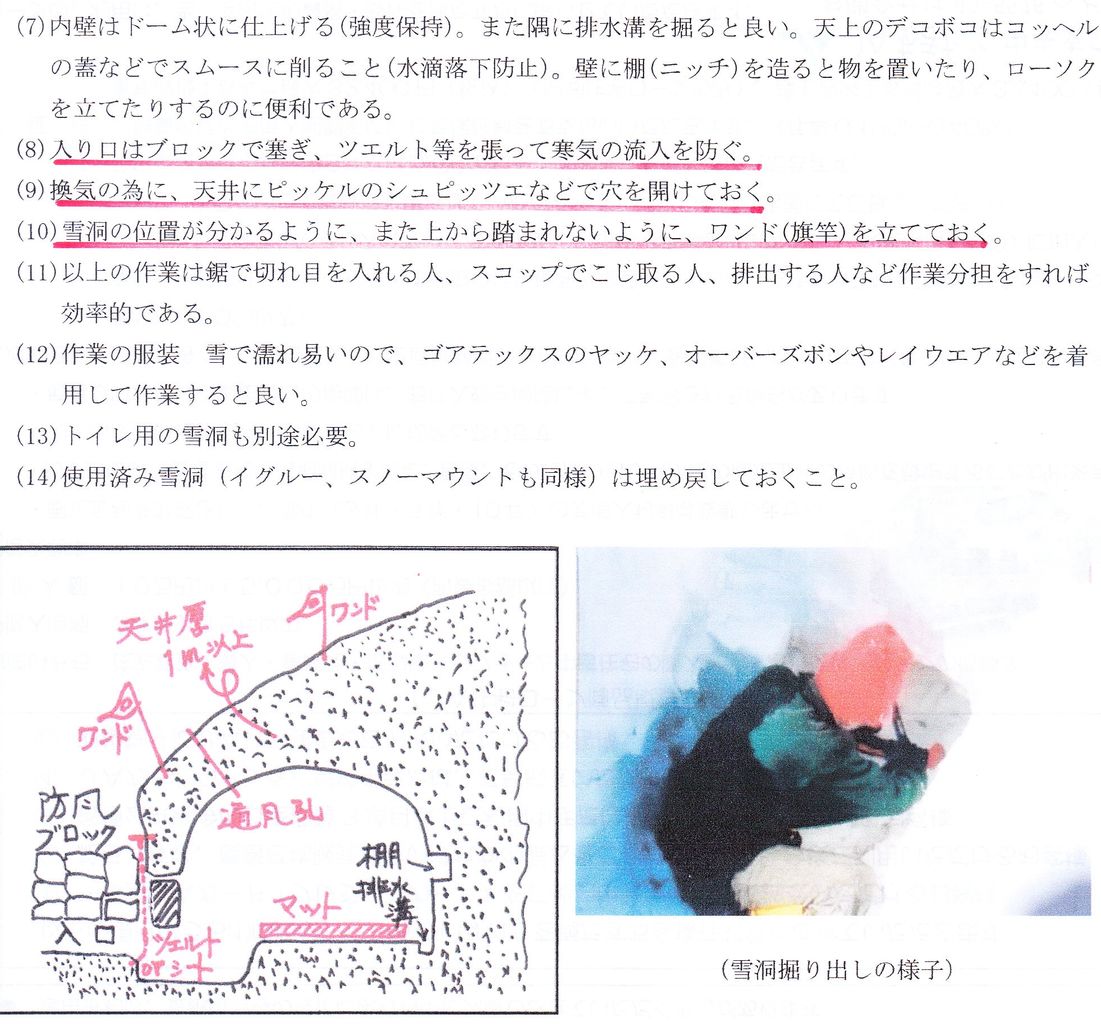 (7)内壁はドーム状に仕上げる(強度保持)。また隅に排水溝を掘ると良い。天上のデコボコはコッヘル
の蓋などでスムースに削ること(水滴落下防止)。壁に棚(ニッチ)を造ると物を置いたり、ローソク
を立てたりするのに便利である。
(8)入り口はブロックで塞ぎ、ツエルト等を張って寒気の流入を防ぐ。
(9)換気の為に、天井にピッケルのシュピッツエなどで穴を開けておく。
(10)雪洞の位置が分かるように、また上から踏まれないように、ワンド(旗竿)を立てておく。
(11)以上の作業は鋸で切れ目を入れる人、スコップでこじ取る人、排出する人など作業分担をすれば
効率的である。
(12)作業の服装　雪で濡れ易いので、ゴアテックスのヤッケ、オーバーズボンやレイウエアなどを着
用して作業すると良い。
(13)トイレ用の雪洞も別途必要。
(14)使用済み雪洞（イグルー、スノーマウントも同様）は埋め戻しておくこと。
ワンド
天井厚
1m以上
ワンド
通風孔
防風
ブロック
棚
排水
溝
マット
入口
ツェルト
orシート
（雪洞掘り出しの様子）